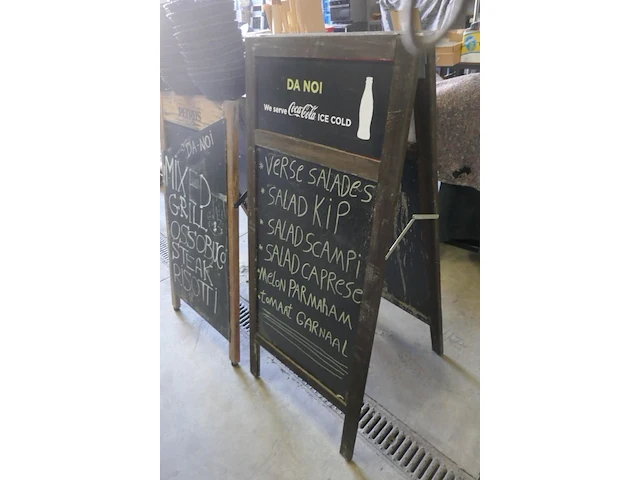 DA-NOI
MIXED
GRILL
OSSOBUCO
STEAK
RISOTTI
DA NOI
We serve Coca-Cola ICE COLD
• VERSE SALADES
• SALAD KIP
• SALAD SCAMPI
• SALAD CAPRESE
• MELON PARMAHAM
• tomaat GARNAAL